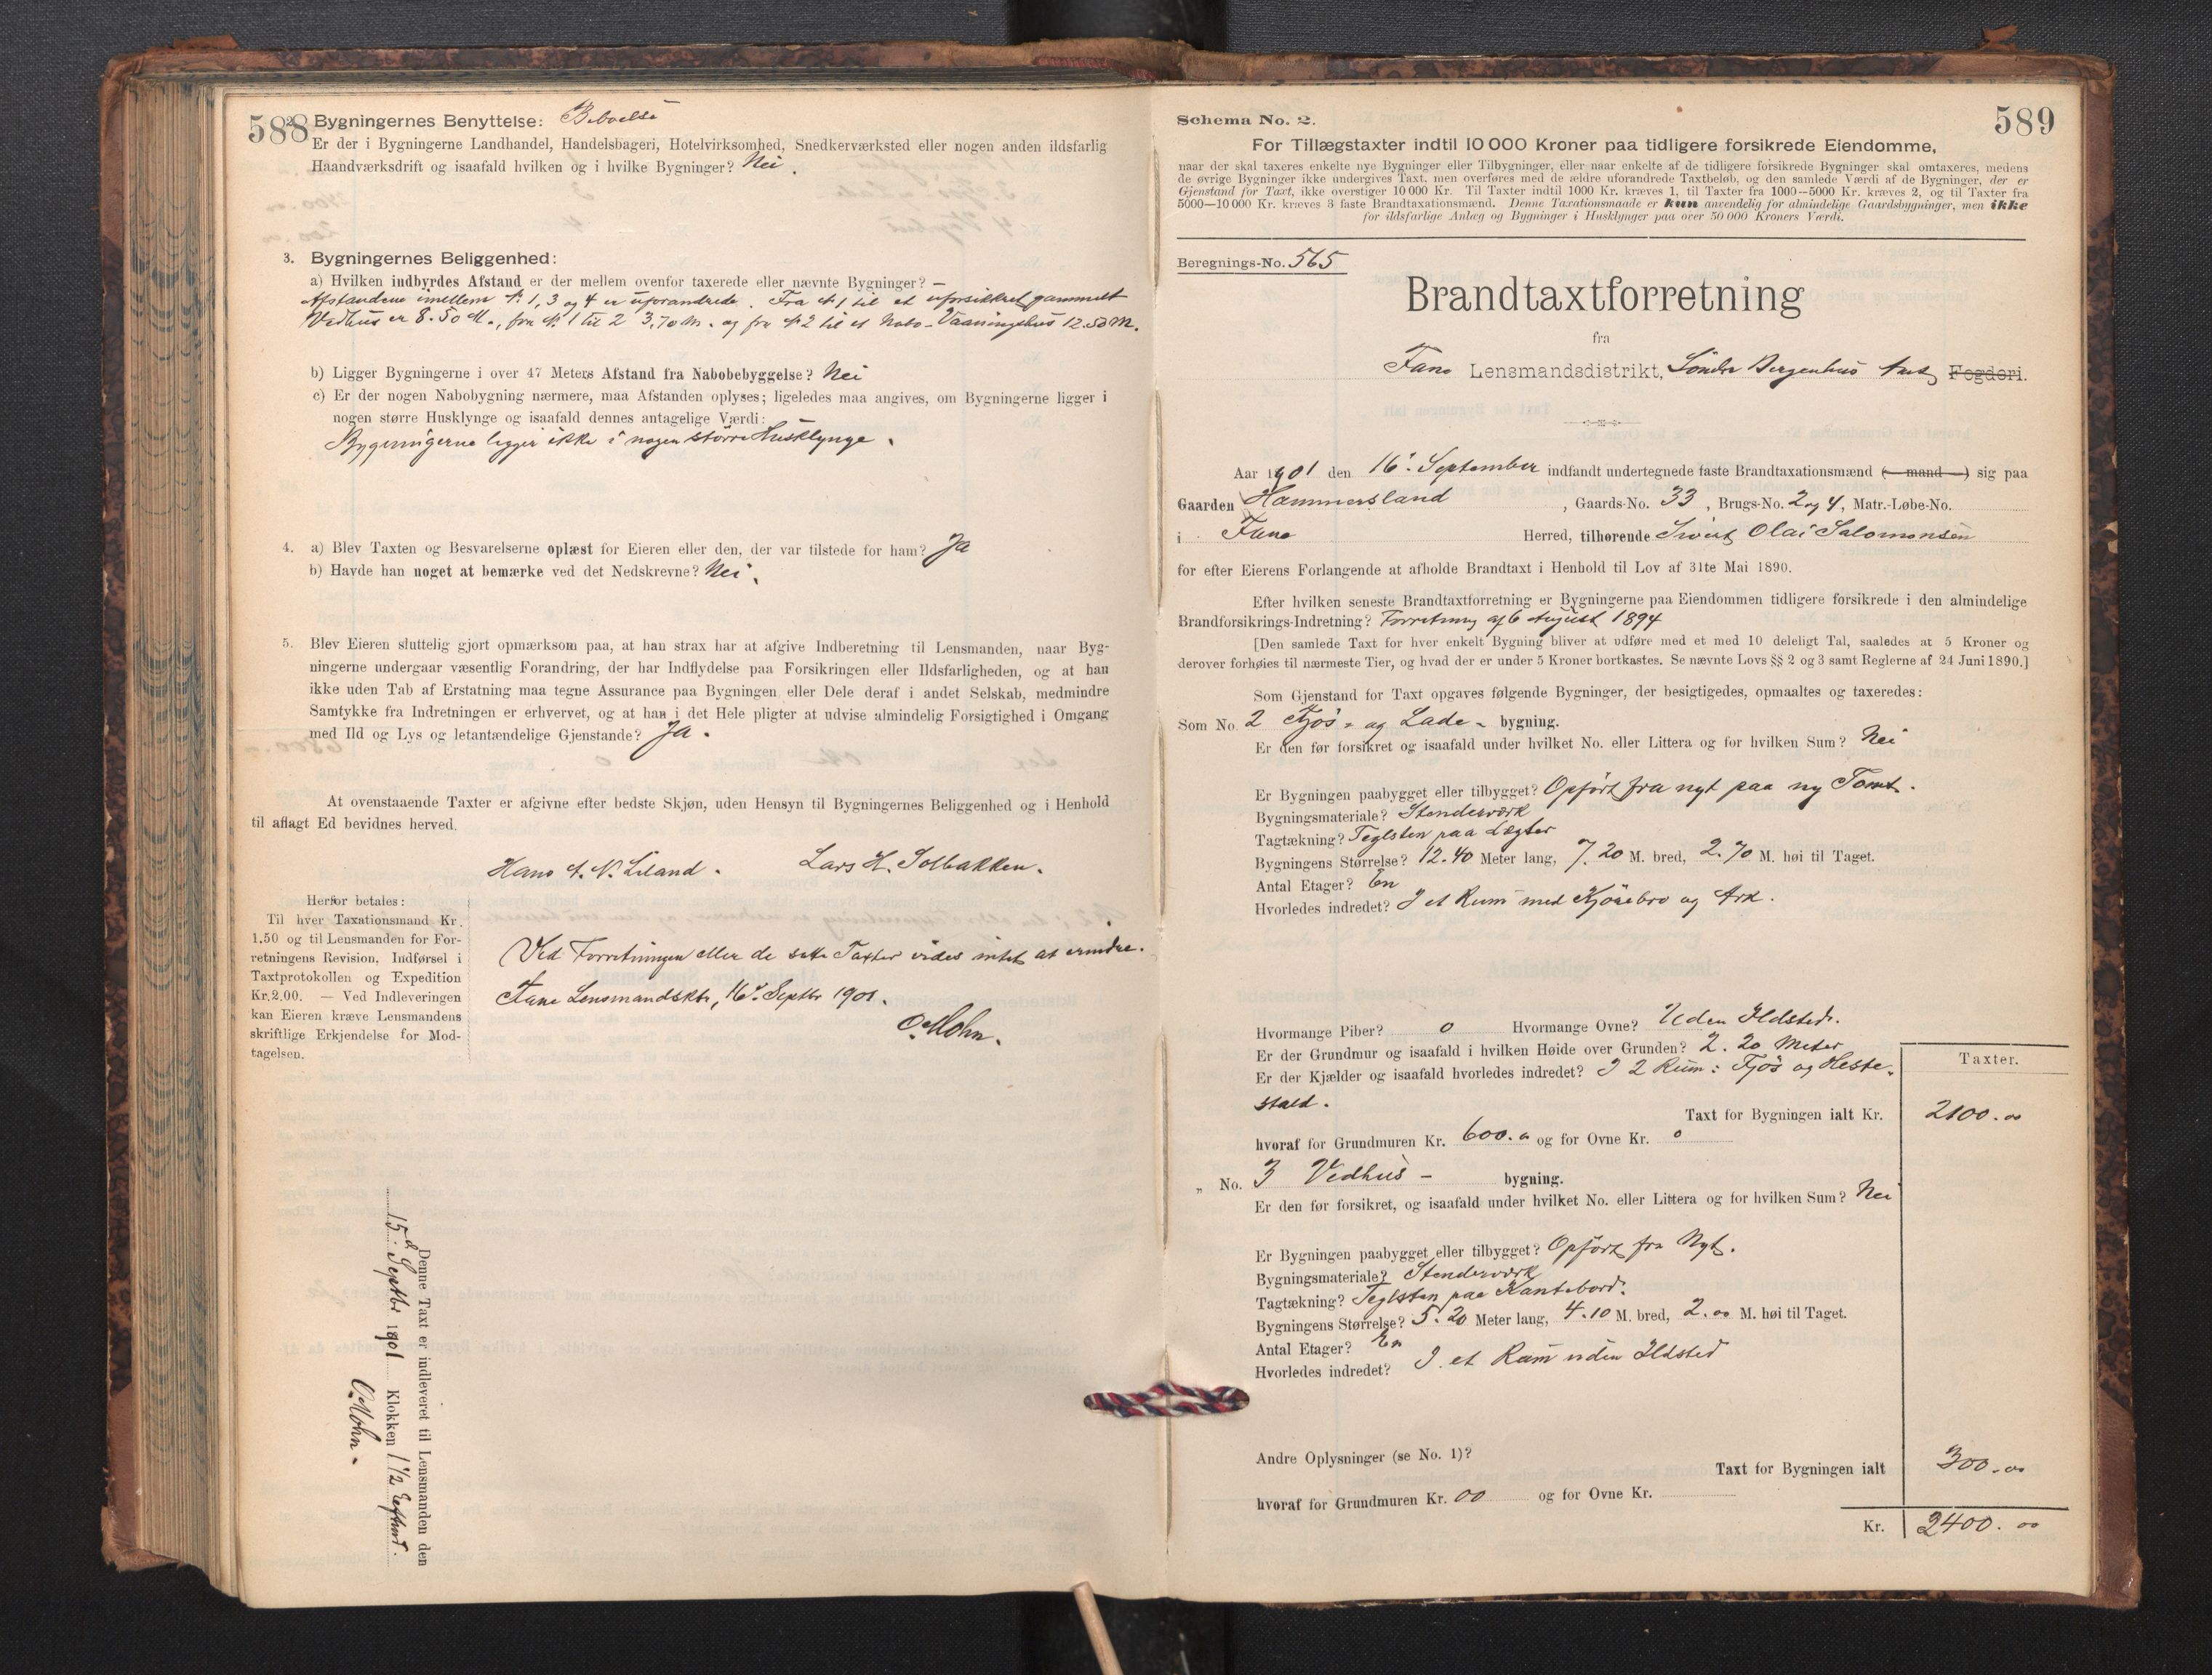 588
2. Bygningernes Benyttelse: Beboelse
Er der i Bygningerne Landhandel, Handelsbageri, Hotelvirksomhed, Snedkerværksted eller nogen anden ildsfarlig
Haandværksdrift og isaafald hvilken og i hvilke Bygninger? Nei.
3. Bygningernes Beliggenhed:
a) Hvilken indbyrdes Afstand er der mellem ovenfor taxerede eller nævnte Bygninger? –
Afstandene imellem № 1, 3 og 4 er uforandrede. Fra № 1 til et uforsikret gammelt
Vedhus er 8.50 M., fra № 1 til 2 3,70 m. og fra № 2 til et Nabo-Vaaningshus 12.50 M.
b) Ligger Bygningerne i over 47 Meters Afstand fra Nabobebyggelse? Nei
c) Er der nogen Nabobygning nærmere, maa Afstanden oplyses; ligeledes maa angives, om Bygningerne ligger i
nogen større Husklynge og isaafald dennes antagelige Værdi:
Bygningerne ligger ikke i nogen større Husklynge.
4. a) Blev Taxten og Besvarelserne oplæst for Eieren eller den, der var tilstede for ham? Ja
b) Havde han noget at bemærke ved det Nedskrevne? Nei.
5. Blev Eieren sluttelig gjort opmærksom paa, at han strax har at afgive Indberetning til Lensmanden, naar Byg-
ningerne undergaar væsentlig Forandring, der har Indflydelse paa Forsikringen eller Ildsfarligheden, og at han
ikke uden Tab af Erstatning maa tegne Assurance paa Bygningen eller Dele deraf i andet Selskab, medmindre
Samtykke fra Indretningen er erhvervet, og at han i det Hele pligter at udvise almindelig Forsigtighed i Omgang
med Ild og Lys og letantændelige Gjenstande? Ja.
At ovenstaaende Taxter er afgivne efter bedste Skjøn, uden Hensyn til Bygningernes Beliggenhed og i Henhold
til aflagt Ed bevidnes herved.
Hans A. N. Liland. Lars H. Solbakken.
Herfor betales:
Til hver Taxationsmand Kr.
1.50 og til Lensmanden for For-
retningens Revision, Indførsel i
Taxtprotokollen og Expedition
Kr. 2.00. — Ved Indleveringen
kan Eieren kræve Lensmandens
skriftlige Erkjendelse for Mod-
tagelsen.
Ved Forretningen eller de satte Taxter vides intet at erindre.
Fane Lensmandsktr, 16d. Septbr 1901.
O. Mohn.
Denne Taxt er indleveret til Lensmanden den
15d. Septbr 1901 Klokken 1 1/2 Efthmt.
O. Mohn.
589
Schema No. 2.
For Tillægstaxter indtil 10 000 Kroner paa tidligere forsikrede Eiendomme,
naar der skal taxeres enkelte nye Bygninger eller Tilbygninger, eller naar enkelte af de tidligere forsikrede Bygninger skal omtaxeres, medens
de øvrige Bygninger ikke undergives Taxt, men overføres med de ældre uforandrede Taxtbeløb, og den samlede Værdi af de Bygninger, der er
Gjenstand for Taxt, ikke overstiger 10 000 Kr. Til Taxter indtil 1000 Kr. kræves 1, til Taxter fra 1000—5000 Kr. kræves 2, og til Taxter fra
5000—10 000 Kr. kræves 3 faste Brandtaxationsmænd. Denne Taxationsmaade er kun anvendelig for almindelige Gaardsbygninger, men ikke
for ildsfarlige Anlæg og Bygninger i Husklynger paa over 50 000 Kroners Værdi.
Beregnings-No. 565
Brandtaxtforretning
fra
Fane Lensmandsdistrikt, Söndre Bergenhus Amt Fogderi.
Aar 1901 den 16d. September indfandt undertegnede faste Brandtaxationsmænd (- mand -) sig paa
Gaarden Hammersland, Gaards-No. 33, Brugs-No. 2 og 4, Matr.-Løbe-No.
i Fane Herred, tilhørende Sivert Olai Salomonsen
for efter Eierens Forlangende at afholde Brandtaxt i Henhold til Lov af 31te Mai 1890.
Efter hvilken seneste Brandtaxtforretning er Bygningerne paa Eiendommen tidligere forsikrede i den almindelige
Brandforsikrings-Indretning? Forretning af 6 August 1894
[Den samlede Taxt for hver enkelt Bygning bliver at udføre med et med 10 deleligt Tal, saaledes at 5 Kroner og
derover forhøies til nærmeste Tier, og hvad der er under 5 Kroner bortkastes. Se nævnte Lovs §§ 2 og 3 samt Reglerne af 24 Juni 1890.]
Som Gjenstand for Taxt opgaves følgende Bygninger, der besigtigedes, opmaaltes og taxeredes:
Som No. 2 Fjös- og Lade- bygning.
Er den før forsikret og isaafald under hvilket No. eller Littera og for hvilken Sum? Nei
Er Bygningen paabygget eller tilbygget? Opført fra nyt paa ny Tomt.
Bygningsmateriale? Stenderværk
Tagtækning? Teglsten paa Lægter
Bygningens Størrelse? 12.40 Meter lang, 7.20 M. bred, 2.70 M. høi til Taget.
Antal Etager? En
Hvorledes indredet? I et Rum med Kjørebro og Ark.
Hvormange Piber? 0 Hvormange Ovne? Uden Ildsted.
Er der Grundmur og isaafald i hvilken Høide over Grunden? 2.20 Meter
Er der Kjælder og isaafald hvorledes indredet? I 2 Rum: Fjös og Heste-
stald.
Taxter.
Taxt for Bygningen ialt Kr. 2100.00
hvoraf for Grundmuren Kr. 600.0 og for Ovne Kr. 0
„ No. 3 Vedhus - bygning.
Er den før forsikret, og isaafald under hvilket No. eller Littera og for hvilken Sum? Nei
Er Bygningen paabygget eller tilbygget? Opført fra Nyt.
Bygningsmateriale? Stenderværk
Tagtækning? Teglsten paa Kantebord.
Bygningens Størrelse? 5.20 Meter lang, 4.10 M. bred, 2.00 M. høi til Taget.
Antal Etager? En
Hvorledes indredet? I et Rum uden Ildsted
Andre Oplysninger (se No. 1)?
Taxt for Bygningen ialt 300.00
hvoraf for Grundmuren Kr. 00 og for Ovne Kr.
Kr. 2400.00